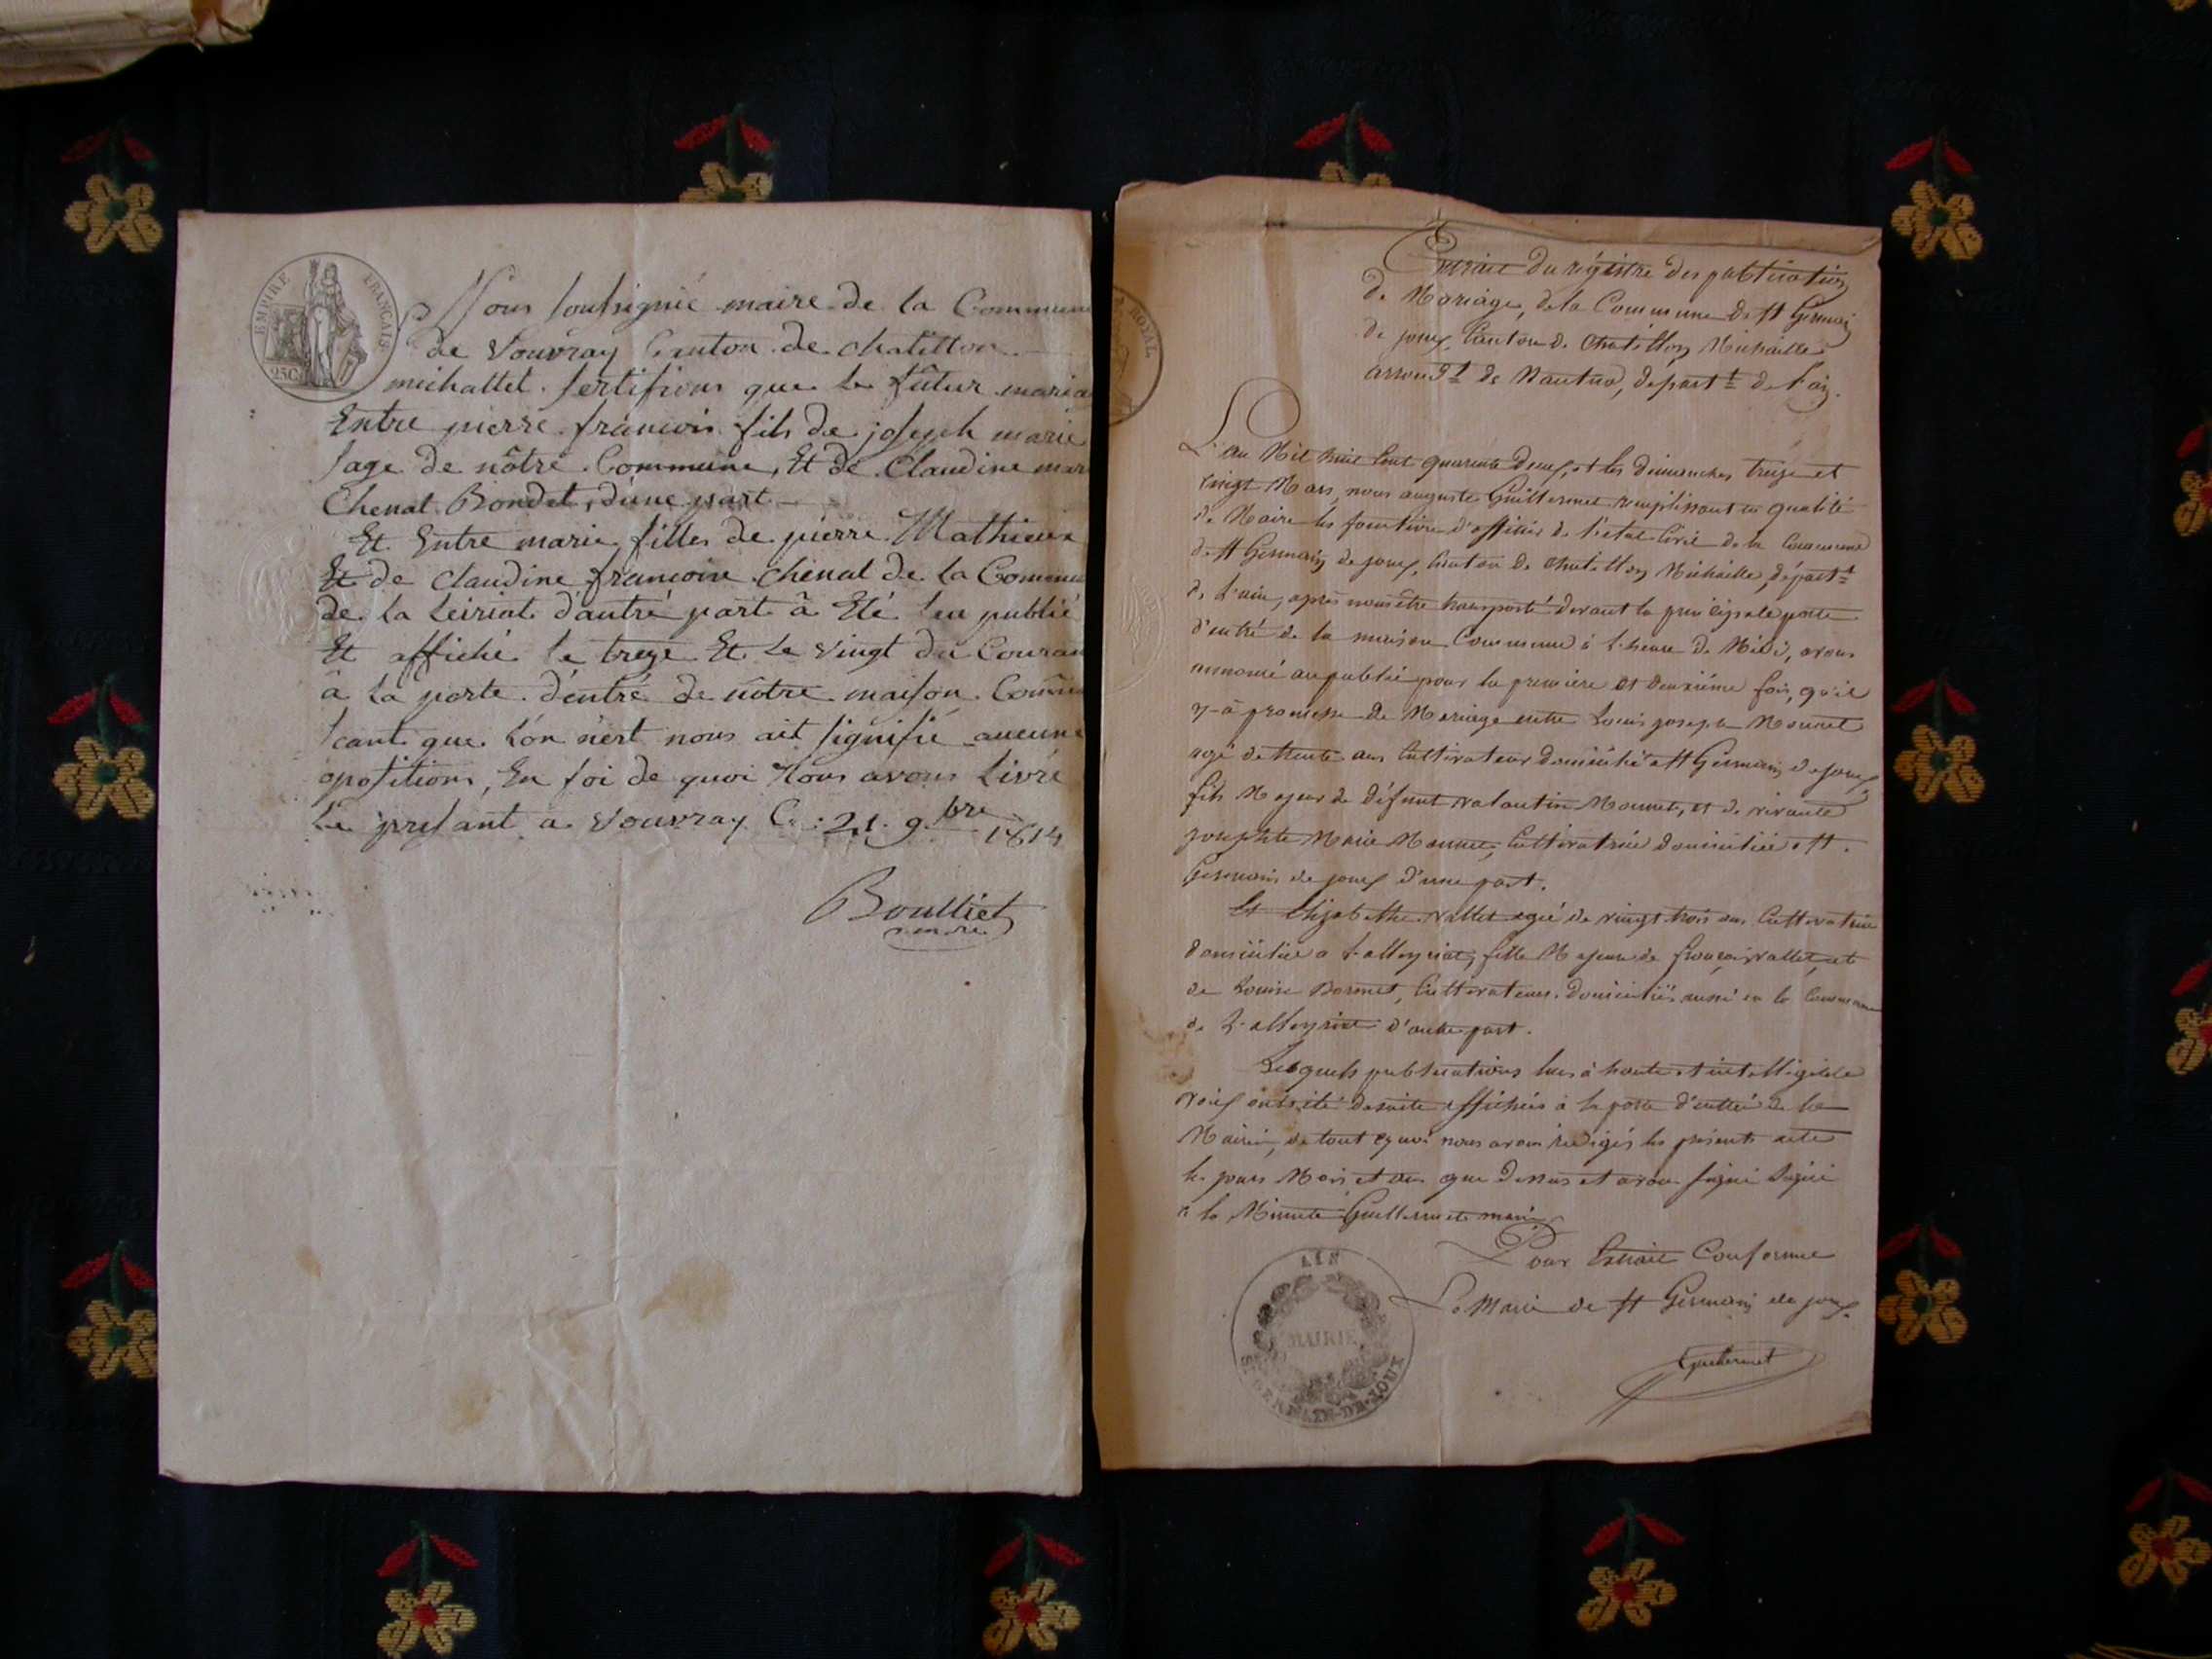 EMPIRE FRANÇAIS
25C
Nous soussignié maire de la Commune
de Vouvray Canton de chatillon
michallet. sertifions que le fûtur maria
Entre pierre françois fils de joseph marie
sage de nôtre Commune, Et de Claudine mari
Chenat Bondet, d'une part
Et Entre marie filles de pierre Mathieux
Et de claudine françoise chenat de la Commu
de la Leiriat d'autré part â Eté leu publié
Et affiché le treze Et le vingt du Couran
â la porte d'entré de nôtre maison Comu
scant que L'on n'est nous ait signifié aucune
opositions, En foi de quoi Nous avons Livré
Le presant a Vouvray Ce 21 9.bre 1814
Boulliet
maire
ROYAL
Extrait du régistre des publications
de Mariage, de la Commune de St Germain
de joux, Canton de Chatillon Michaille
arrond.t de Nantua, départ.t de l'ain.
L'an Mil huit Cent quarante deux, et les dimanches treize et
Vingt Mars, nous auguste Guillermet remplissant en qualité
de Maire les fonctions d'officier de l'état Civil de la Commune
de St Germain de joux, Canton de Chatillon Michaille, départ.t
de L'ain, après nous être transporté devant la principale porte
d'entré de la maison Commune à l'heure de Midi, avons
annoncé au public pour la première et deuxième fois, qu'il
y-à promesse de Mariage entre Louis joseph Monnet
agé de trente ans Cultivateur domicilié a St Germain de joux
fils Majeur de défunt valantin Monnet, et de vivante
josephte Marie Monnet, Cultivatrice domiciliée a St
Germain de joux d'une part.
Et Elizabethe vallet agée de vingt trois ans Cultivatrice
domiciliée a L-alleyriat, fille Majeure de françois vallet, et
de Louise Bormet, Cultivateurs domiciliés aussi en la Commune
de L-alleyriat d'autre part.
Lesquels publications lues à haute et intelligible
voix ont été de suite affichées à la porte d'entré de la
Mairie, de tout çe que nous avons redigés les présents acte
les jours Mois et an que dessus et avons signé Signé
a la Minute Guillermet maire
Pour Extrait Conforme
Le Maire de St Germain de joux.
Guillermet
AIN
MAIRIE
ST GERMAIN-DE-JOUX